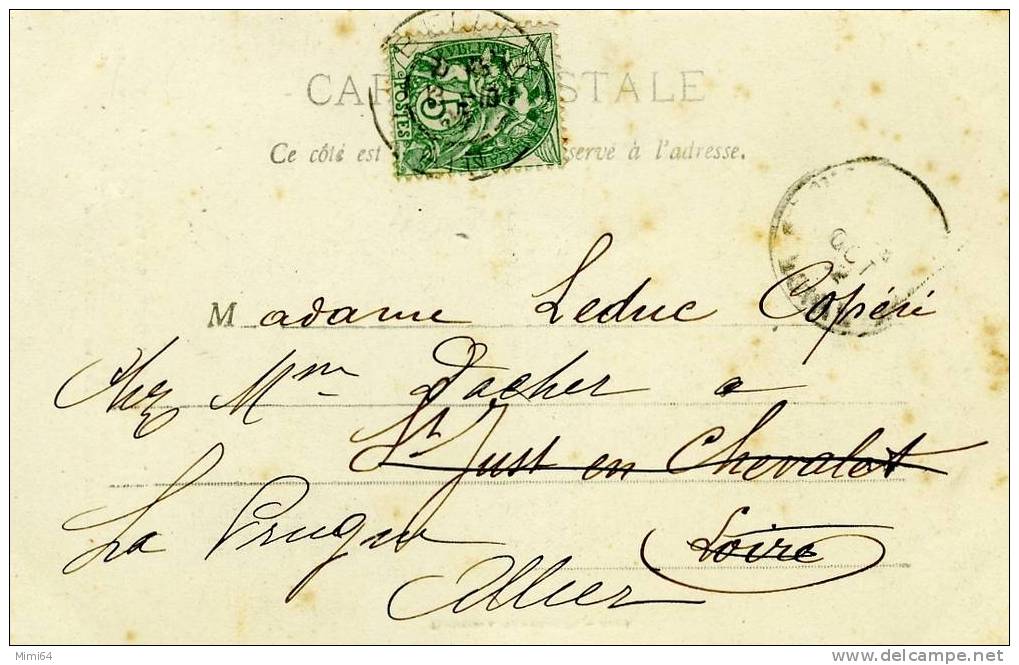 CAR STALE
Ce côté est servé à l'adresse.
POSTES
5
OCT
Madame Leduc Copéré
Chez Mme Dacher a
St Just en Chevalet
Loire
La Prugne
Allier
Mimi64
www.delcampe.net